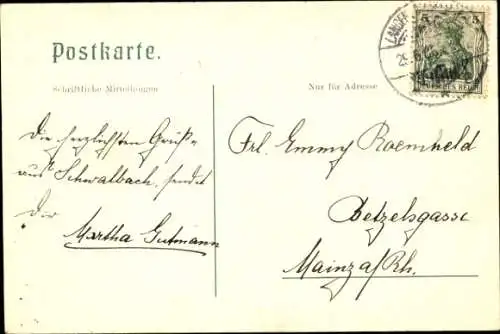 Postkarte.
Schriftliche Mitteilungen
Nur für Adresse
5 5
DEUTSCHES REICH
Die herzlichsten Grüße
aus Schwalbach, sendet
Dir
Martha Gutmann
Frl. Emmy Roemheld
Betzelsgasse
Mainz a/Rh.